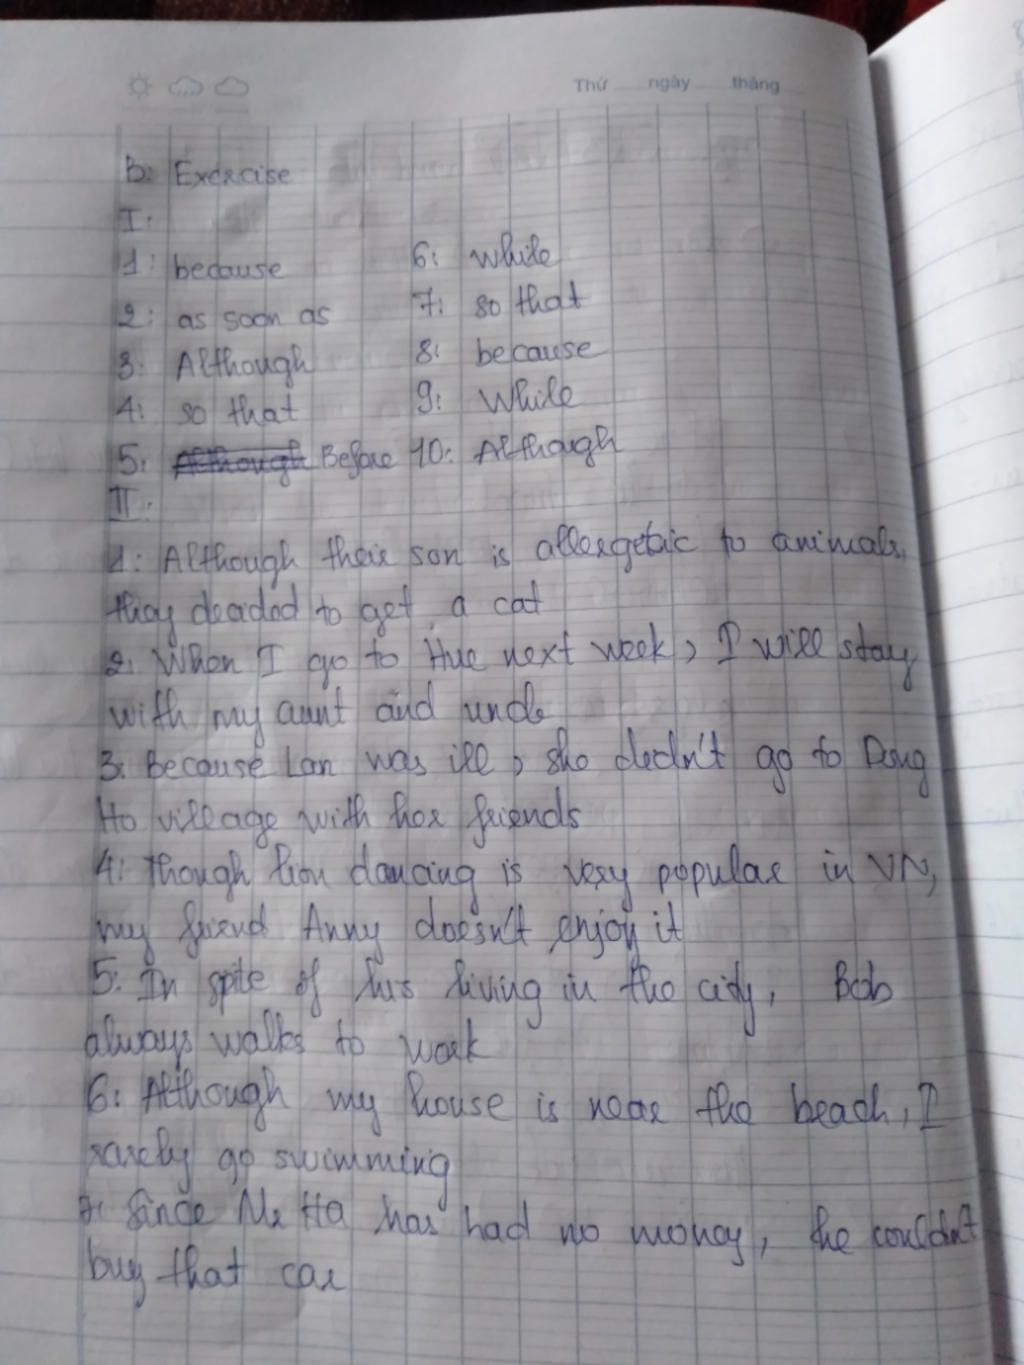 Thứ ngày tháng
B: Exercise
I:
1: because 6: while
2: as soon as 7: so that
3: Although 8: because
4: so that 9: While
5: Although Before 10: Although
II:
1: Although their son is allergetic to animals,
they decided to get a cat
2: When I go to Hue next week, I will stay
with my aunt and uncle
3: Because Lan was ill, she dedn't go to Dong
Ho village with her friends
4: Though lion dancing is very popular in VN,
my friend Anny doesn't enjoy it
5: In spite of his living in the city, Bob
always walks to work
6: Although my house is near the beach, I
rarely go swimming
7: Since Mr Ha has had no money, he couldn't
buy that car